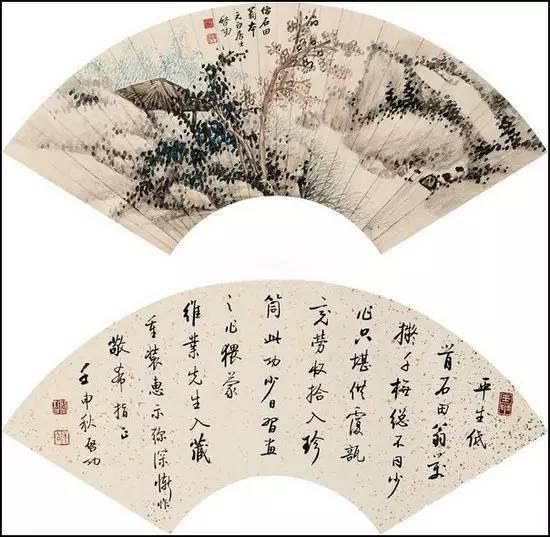 倣石田
翁本
元白居士
啓功
平生低
首石田翁萬
擬千橅總不同少
作只堪供覆瓿
勞收拾入珍
筒此功少日習畫
之作猥蒙
維業先生入藏
重裝惠示弥深慚怍
敬希指正
壬申秋啓功